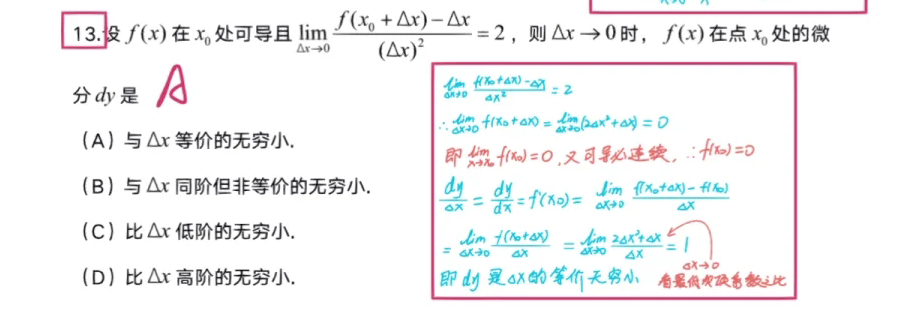 13.设 f(x) 在 x₀ 处可导且 lim_{Δx→0} (f(x₀+Δx)−Δx)/(Δx)² = 2，则 Δx→0 时，f(x) 在点 x₀ 处的微
分 dy 是 A
（A）与 Δx 等价的无穷小.
（B）与 Δx 同阶但非等价的无穷小.
（C）比 Δx 低阶的无穷小.
（D）比 Δx 高阶的无穷小.
lim_{Δx→0} (f(x₀+Δx)−Δx)/Δx² = 2
∴ lim_{Δx→0} f(x₀+Δx) = lim_{Δx→0} (2Δx²+Δx) = 0
即 lim_{x→x₀} f(x₀)=0，又可导必连续，∴f(x₀)=0
dy/Δx = dy/dx = f'(x₀) = lim_{Δx→0} (f(x₀+Δx)−f(x₀))/Δx
= lim_{Δx→0} f(x₀+Δx)/Δx = lim_{Δx→0} (2Δx²+Δx)/Δx = 1
Δx→0
即 dy 是 Δx 的等价无穷小 看最低次项系数之比